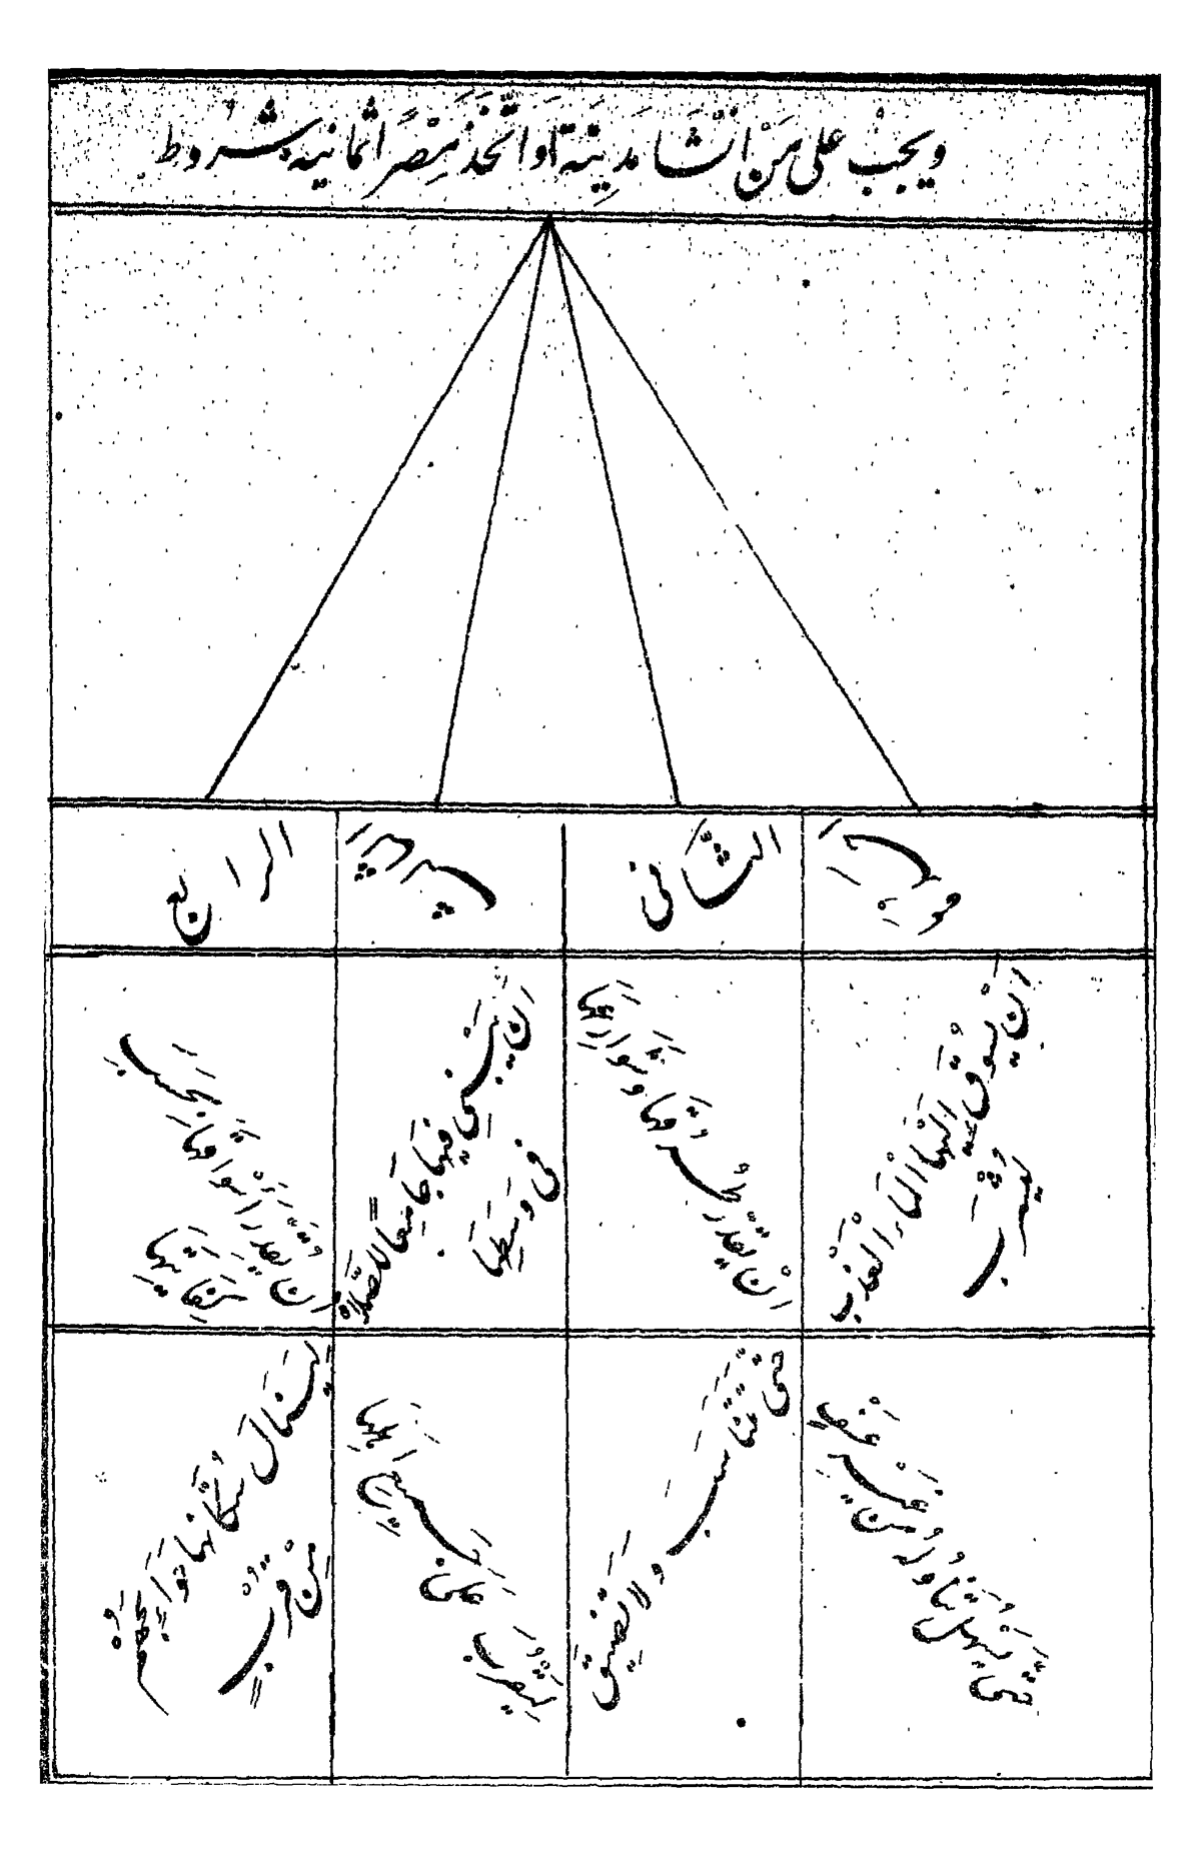 ويجب على من انشا مدينة او اتخذ مصرا ثمانية شروط
الثاني
الرابع
ان يسوق اليها الماء العذب
ليشرب
ان يقدر طرقها وشوارعها
ان يبني فيها جامعا للصلاة
في وسطها
ان يقدر اسواقها بحسب
كفايتها
حتى يسهل تناوله من غير عسف
حتى تتناسب ولا تضيق
ليقرب على جميع اهلها
لينال سكانها حوائجهم
من قرب